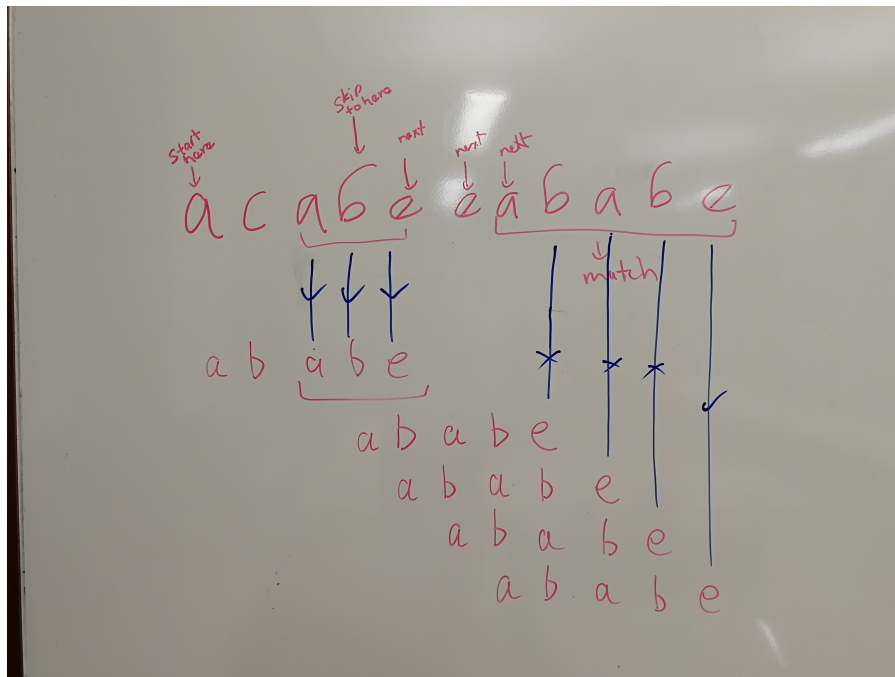 skip to here
start here
next
next
next
a c a b e e a b a b e
match
a b a b e
a b a b e
a b a b e
a b a b e
a b a b e